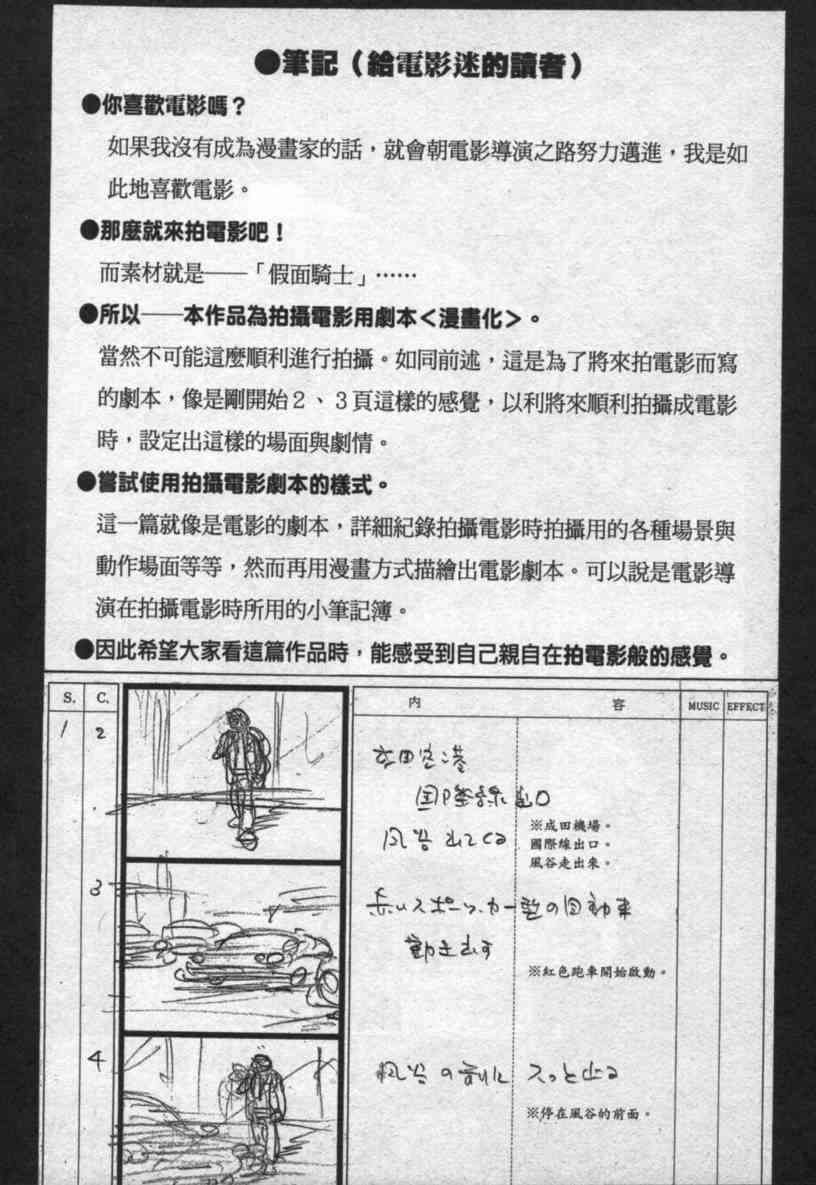 ●筆記（給電影迷的讀者）
●你喜歡電影嗎？
如果我沒有成為漫畫家的話，就會朝電影導演之路努力邁進，我是如
此地喜歡電影。
●那麼就來拍電影吧！
而素材就是——「假面騎士」……
●所以——本作品為拍攝電影用劇本＜漫畫化＞。
當然不可能這麼順利進行拍攝。如同前述，這是為了將來拍電影而寫
的劇本，像是剛開始２、３頁這樣的感覺，以利將來順利拍攝成電影
時，設定出這樣的場面與劇情。
●嘗試使用拍攝電影劇本的樣式。
這一篇就像是電影的劇本，詳細紀錄拍攝電影時拍攝用的各種場景與
動作場面等等，然而再用漫畫方式描繪出電影劇本。可以說是電影導
演在拍攝電影時所用的小筆記簿。
●因此希望大家看這篇作品時，能感受到自己親自在拍電影般的感覺。
S. C. 內 容 MUSIC EFFECT
1 2
成田空港
国際線出口
風谷出てくる
※成田機場。
國際線出口。
風谷走出來。
3
赤いスポーツ・カー型の自動車
動き出す
※紅色跑車開始啟動。
4
風谷の前に スッと止る
※停在風谷的前面。